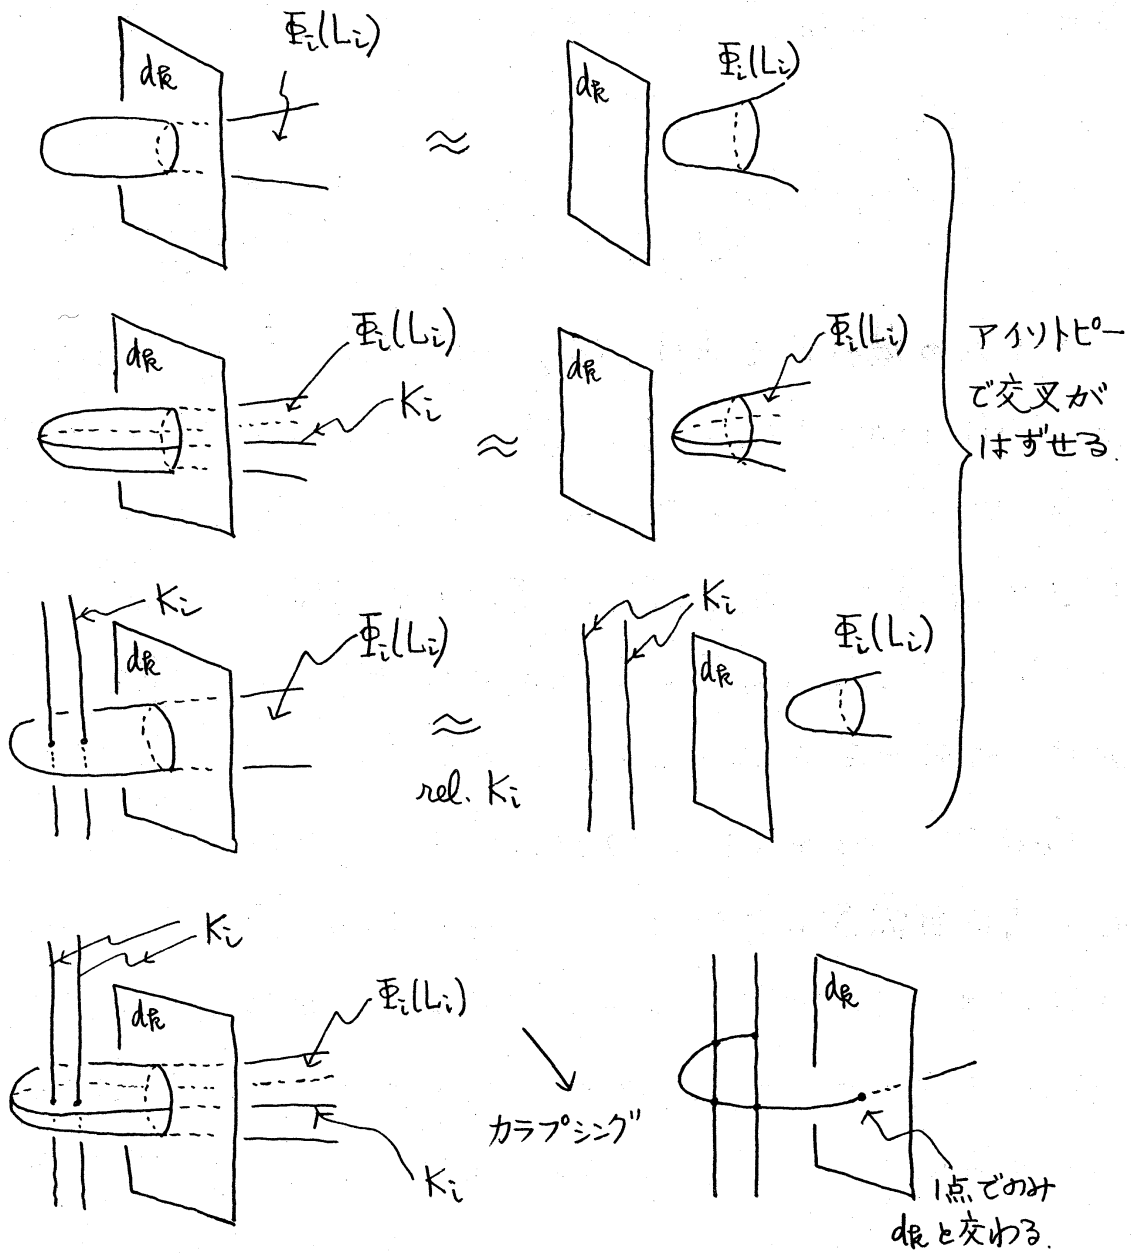 Φᵢ(Lᵢ)
dk
≈
Φᵢ(Lᵢ)
dk
Φᵢ(Lᵢ)
dk
Kᵢ
≈
Φᵢ(Lᵢ)
dk
アイソトピー
で交叉が
はずせる.
Kᵢ
dk
Φᵢ(Lᵢ)
≈
rel. Kᵢ
Kᵢ
dk
Φᵢ(Lᵢ)
Kᵢ
dk
Φᵢ(Lᵢ)
Kᵢ
カラプシング
dk
1点でのみ
dkと交わる.